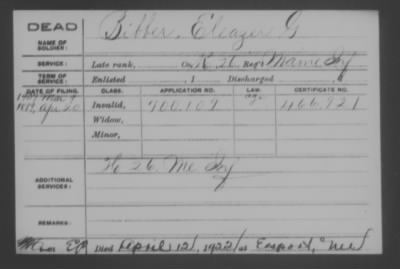 DEAD
Bibber, Eleazer G
NAME OF SOLDIER:
SERVICE: Late rank, Co. H, 26, Reg't Maine Inf
TERM OF SERVICE: Enlisted , 1 Discharged , 1
DATE OF FILING. CLASS. APPLICATION NO. LAW. CERTIFICATE NO.
1889, Apr 20 Invalid, 700.109 466.921
Widow,
Minor,
ADDITIONAL SERVICES: H 26 Me Inf
REMARKS:
Died April 12, 1922, at Eastport, Me